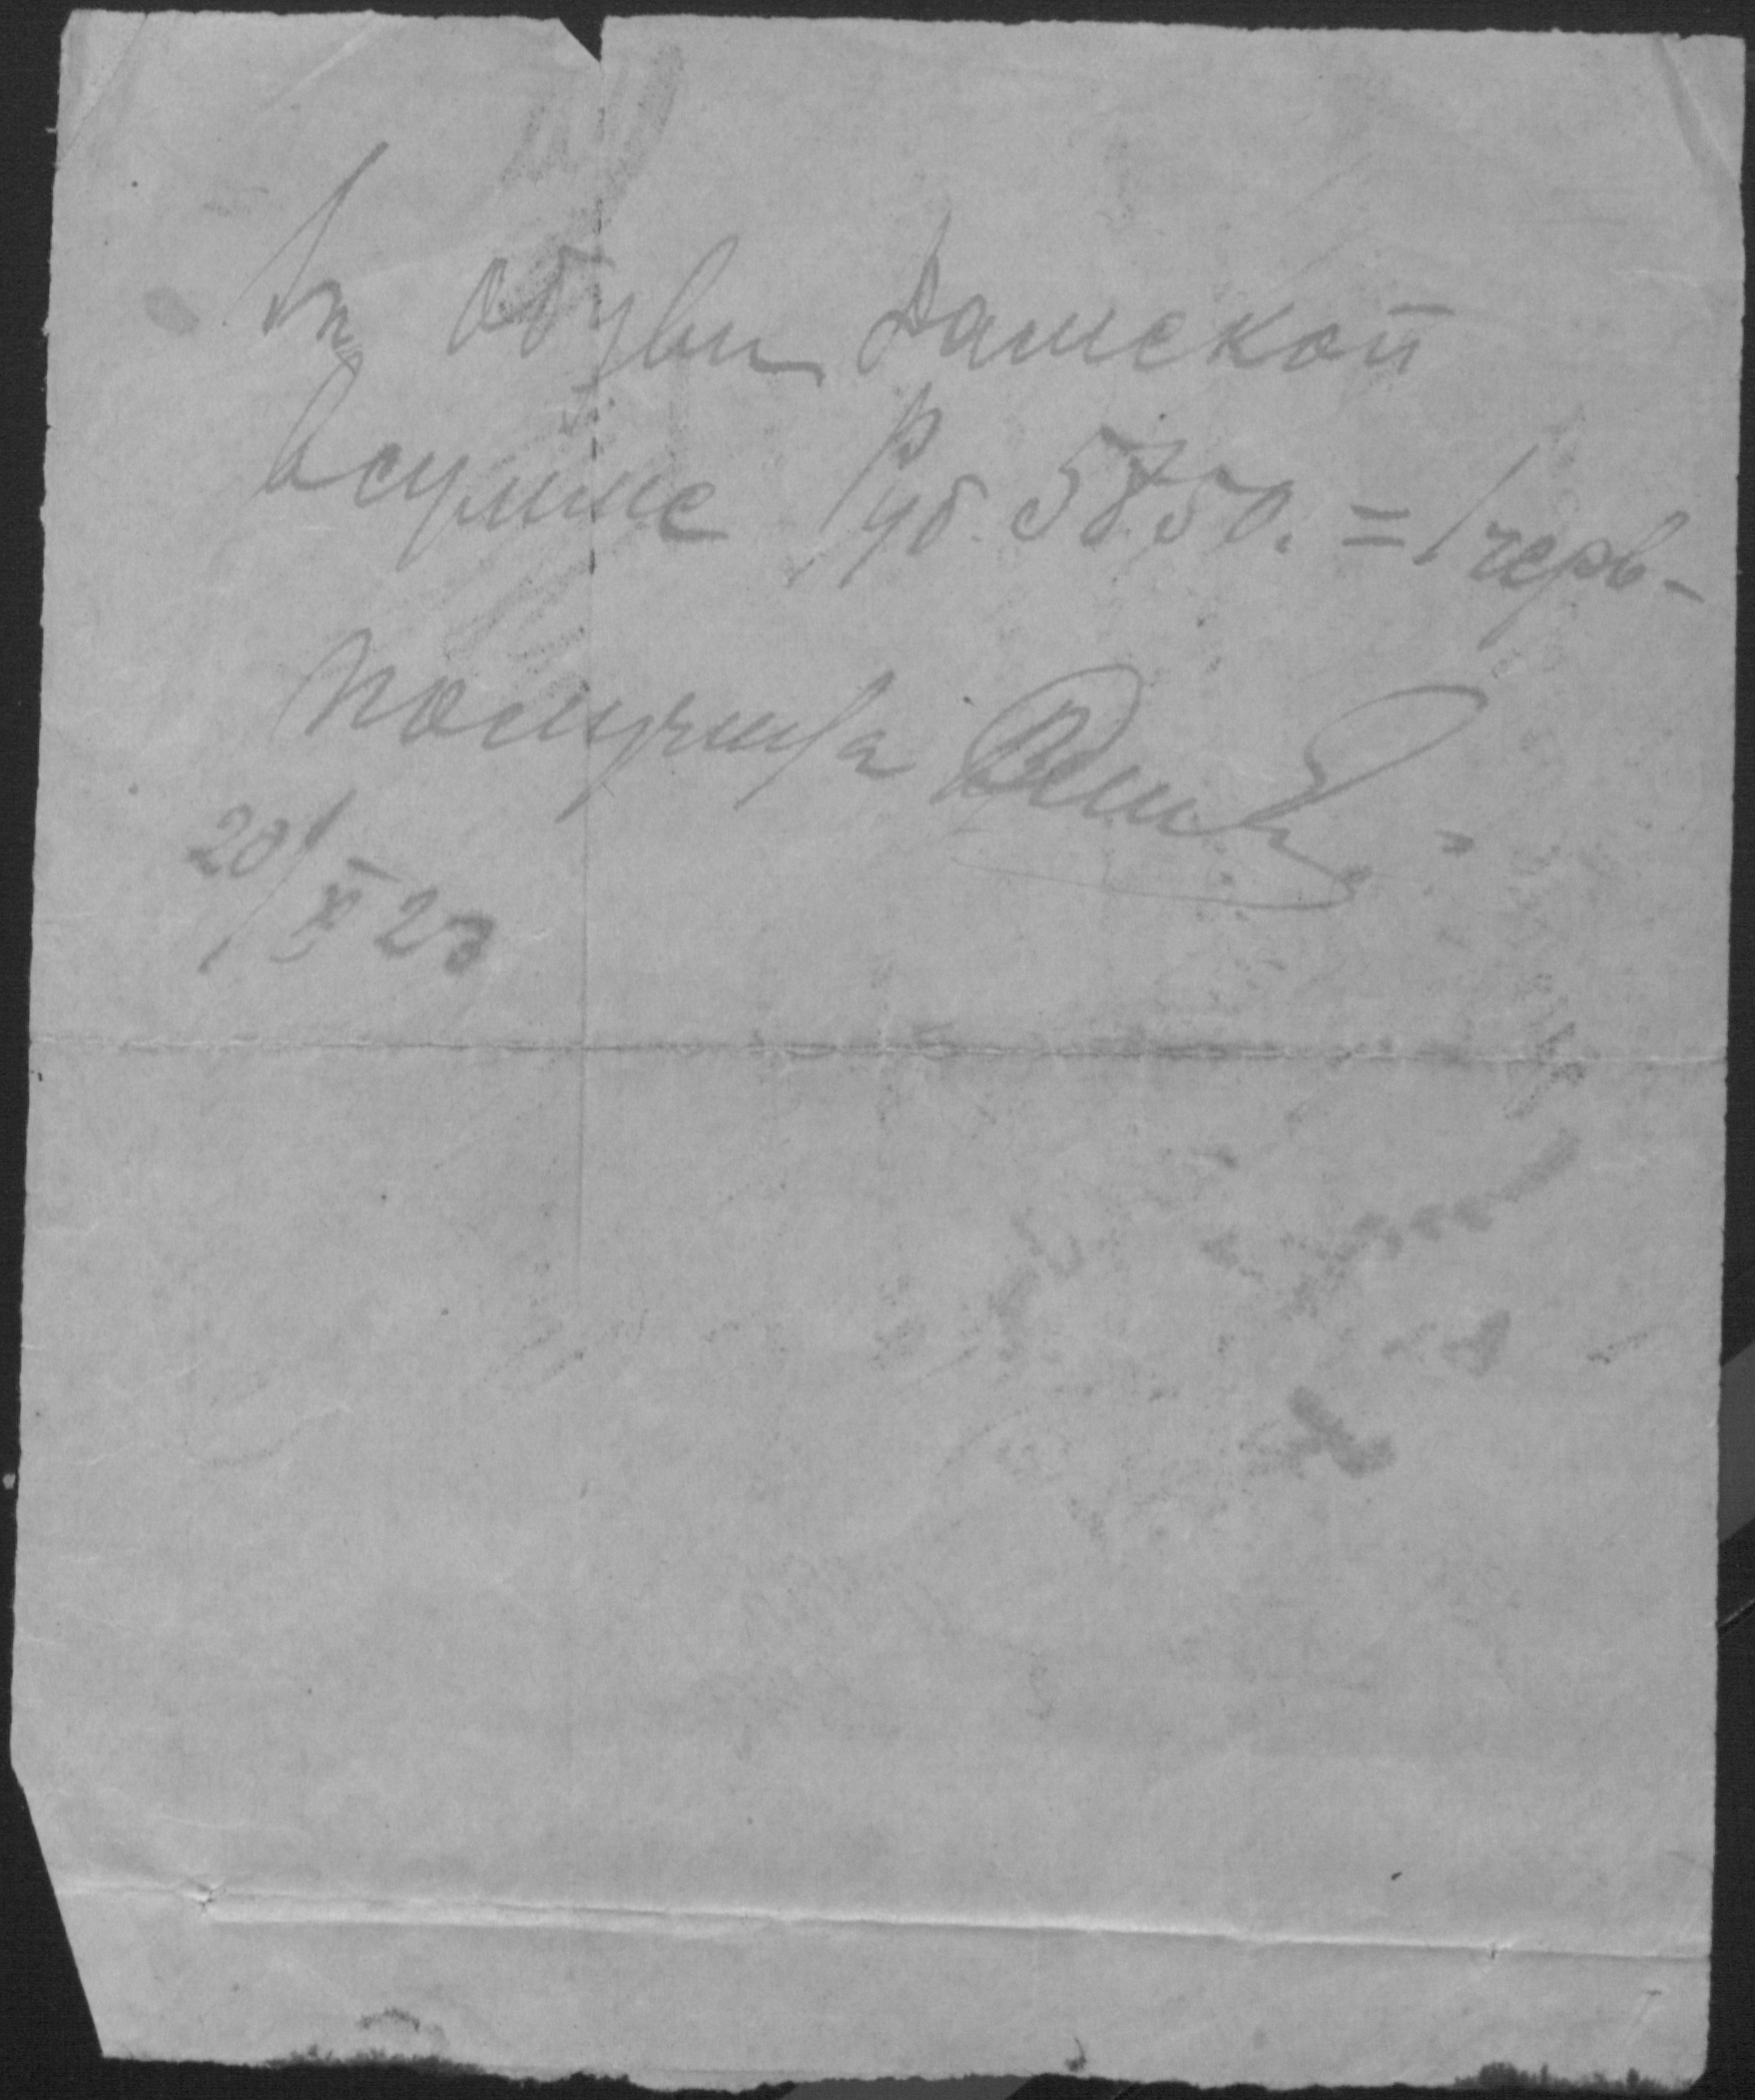 1 п. обуви дамской
в сумме Руб. 5850. = 1 черв-
получила
20/XI 23